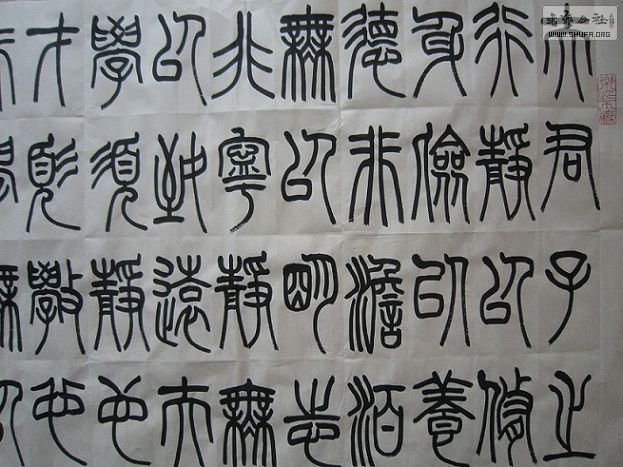 夫君子之
行靜以修
身儉以養
德非澹泊
無以明志
非寧靜無
以致遠夫
學須靜也
才須斆也
無以
WWW.SHUFA.ORG